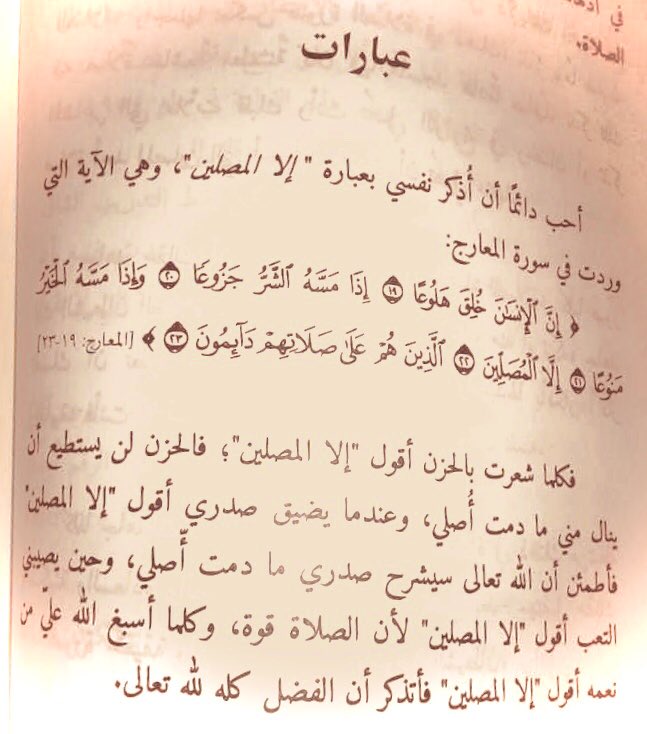 في
الصلاة.
عبارات
أحب دائمًا أن أُذكر نفسي بعبارة "إلا المصلين"، وهي الآية التي
وردت في سورة المعارج:
﴿ إِنَّ ٱلْإِنسَٰنَ خُلِقَ هَلُوعًا ۝١٩ إِذَا مَسَّهُ ٱلشَّرُّ جَزُوعًا ۝٢٠ وَإِذَا مَسَّهُ ٱلْخَيْرُ
مَنُوعًا ۝٢١ إِلَّا ٱلْمُصَلِّينَ ۝٢٢ ٱلَّذِينَ هُمْ عَلَىٰ صَلَاتِهِمْ دَآئِمُونَ ۝٢٣ ﴾ [المعارج: ١٩-٢٣]
فكلما شعرت بالحزن أقول "إلا المصلين"؛ فالحزن لن يستطيع أن
ينال مني ما دمت أُصلي، وعندما يضيق صدري أقول "إلا المصلين"
فأطمئن أن الله تعالى سيشرح صدري ما دمت أُصلي، وحين يصيبني
التعب أقول "إلا المصلين" لأن الصلاة قوة، وكلما أسبغ الله عليّ من
نعمه أقول "إلا المصلين" فأتذكر أن الفضل كله لله تعالى.